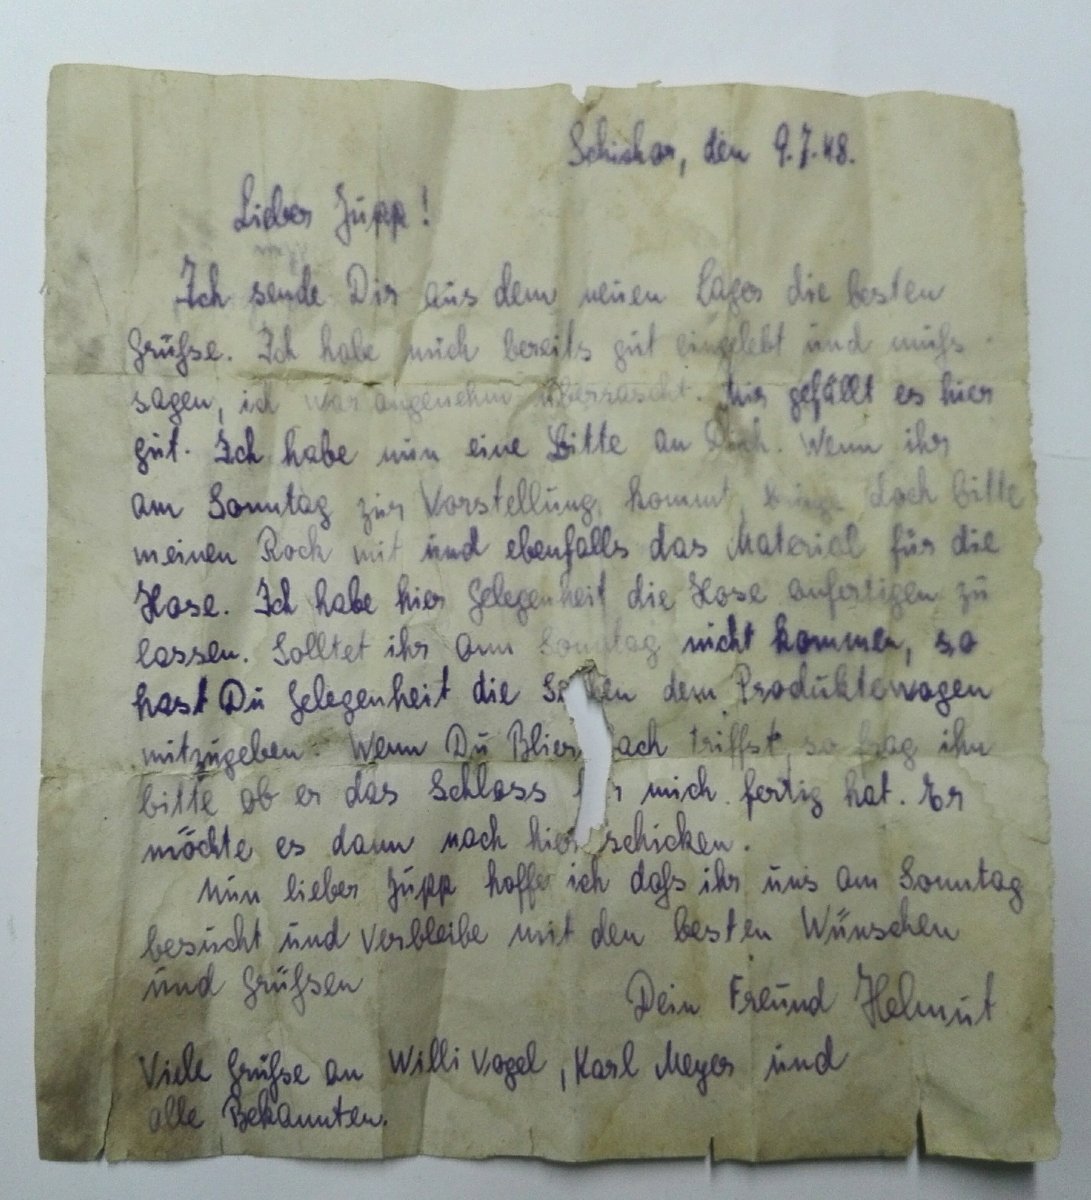 Schichow, den 9.7.48.
Lieber Jupp!
Ich sende Dir aus dem neuen Lager die besten
Grüße. Ich habe mich bereits gut eingelebt und muß
sagen, ich war angenehm überrascht. Mir gefällt es hier
gut. Ich habe nun eine Bitte an Dich. Wenn ihr
am Sonntag zur Vorstellung kommt, bringe doch bitte
meinen Rock mit und ebenfalls das Material für die
Hose. Ich habe hier Gelegenheit die Hose anfertigen zu
lassen. Solltet ihr am Sonntag nicht kommen, so
hast Du Gelegenheit die dem Produktewagen
mitzugeben. Wenn Du triffst, so frag ihn
bitte ob er das Schloss mich fertig hat. Er
möchte es dann nach hier schicken.
Nun lieber Jupp hoffe ich daß ihr uns am Sonntag
besucht und verbleibe mit den besten Wünschen
und Grüßen
Dein Freund Helmut
Viele Grüße an Willi Vogel, Karl Meyer und
alle Bekannten.